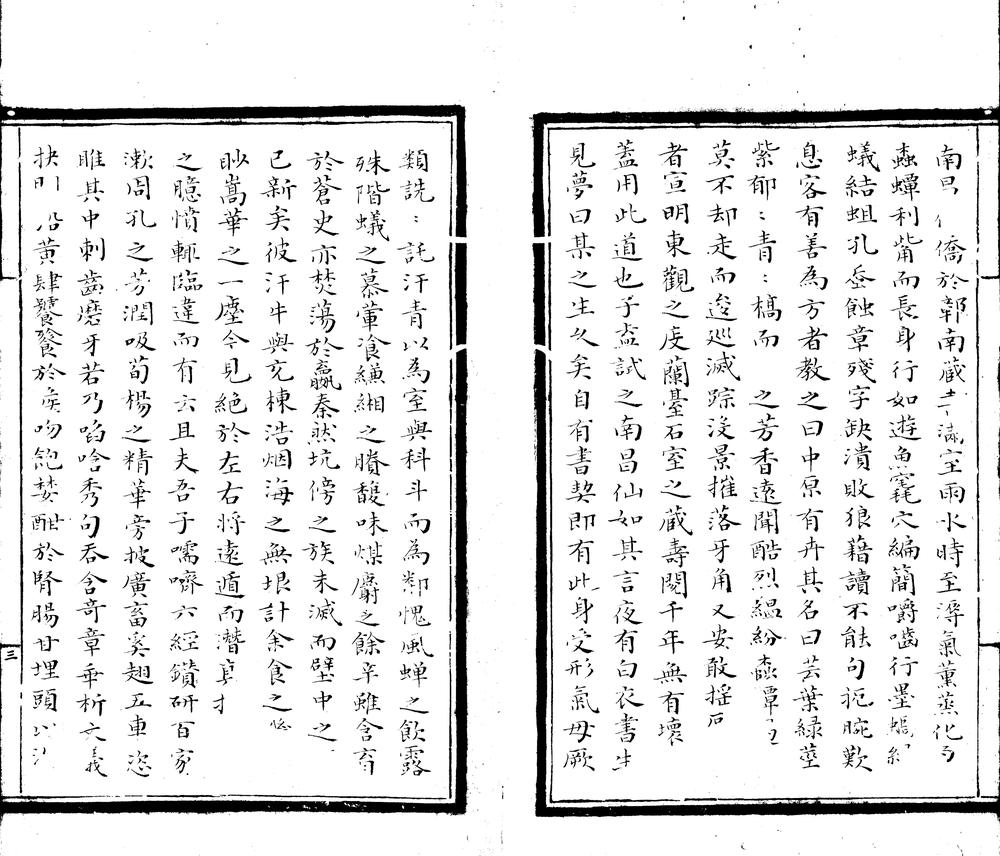 南昌僑於鄣南藏室雨水時至溽氣薰蒸化
蠹蟫利觜而長身行如遊魚窟穴編簡嚼囓行墨
蟻結蛆孔蚕蝕章殘字缺潰敗狼藉讀不能句扼腕歎
息客有善為方者教之曰中原有卉其名曰芸葉緑莖
紫郁〻青〻槁而之芳香遠聞酷烈緼紛蠹
莫不却走而逡巡滅踪沒景摧落牙角又安敢揺
者宣明東觀之庋蘭臺石室之藏壽閱千年無有壞
蓋用此道也子盍試之南昌仙如其言夜有白衣書生
見夢曰某之生久矣自有書契即有此身受形氣母厥
類詵〻託汗青以為室與科斗而為鄰愧風蟬之飲露
殊階蟻之慕葷飡縑緗之賸馥味煤麝之餘辛雖含育
於蒼史亦焚蕩於嬴秦然坑傍之族未滅而壁中之
已新矣彼汗牛與充棟浩烟海之無垠計余食之
眇嵩華之一塵今見絕於左右将遠遁而潛
之臆憤輙臨違而有云且夫吾子嚅嚌六經鑽研百家
漱周孔之芳潤吸荀楊之精華旁披廣畜奚翅五車恣
睢其中刺齒磨牙若乃啗唅秀句吞含竒章乖析文義
抉沿黃肆饕餮於矦吻飽婪酣於腎腸甘埋頭以
三